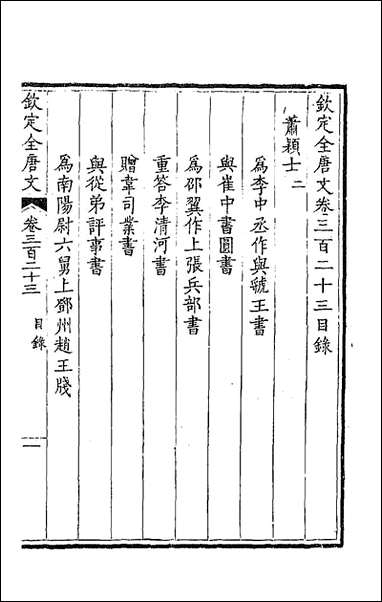 欽定全唐文卷三百二十三目錄
蕭穎士二
為李中丞作與虢王書
與崔中書圓書
為邵翼作上張兵部書
重答李清河書
贈韋司業書
與從弟評事書
為南陽尉六舅上鄧州趙王牋
欽定全唐文 卷三百二十三 目錄 一